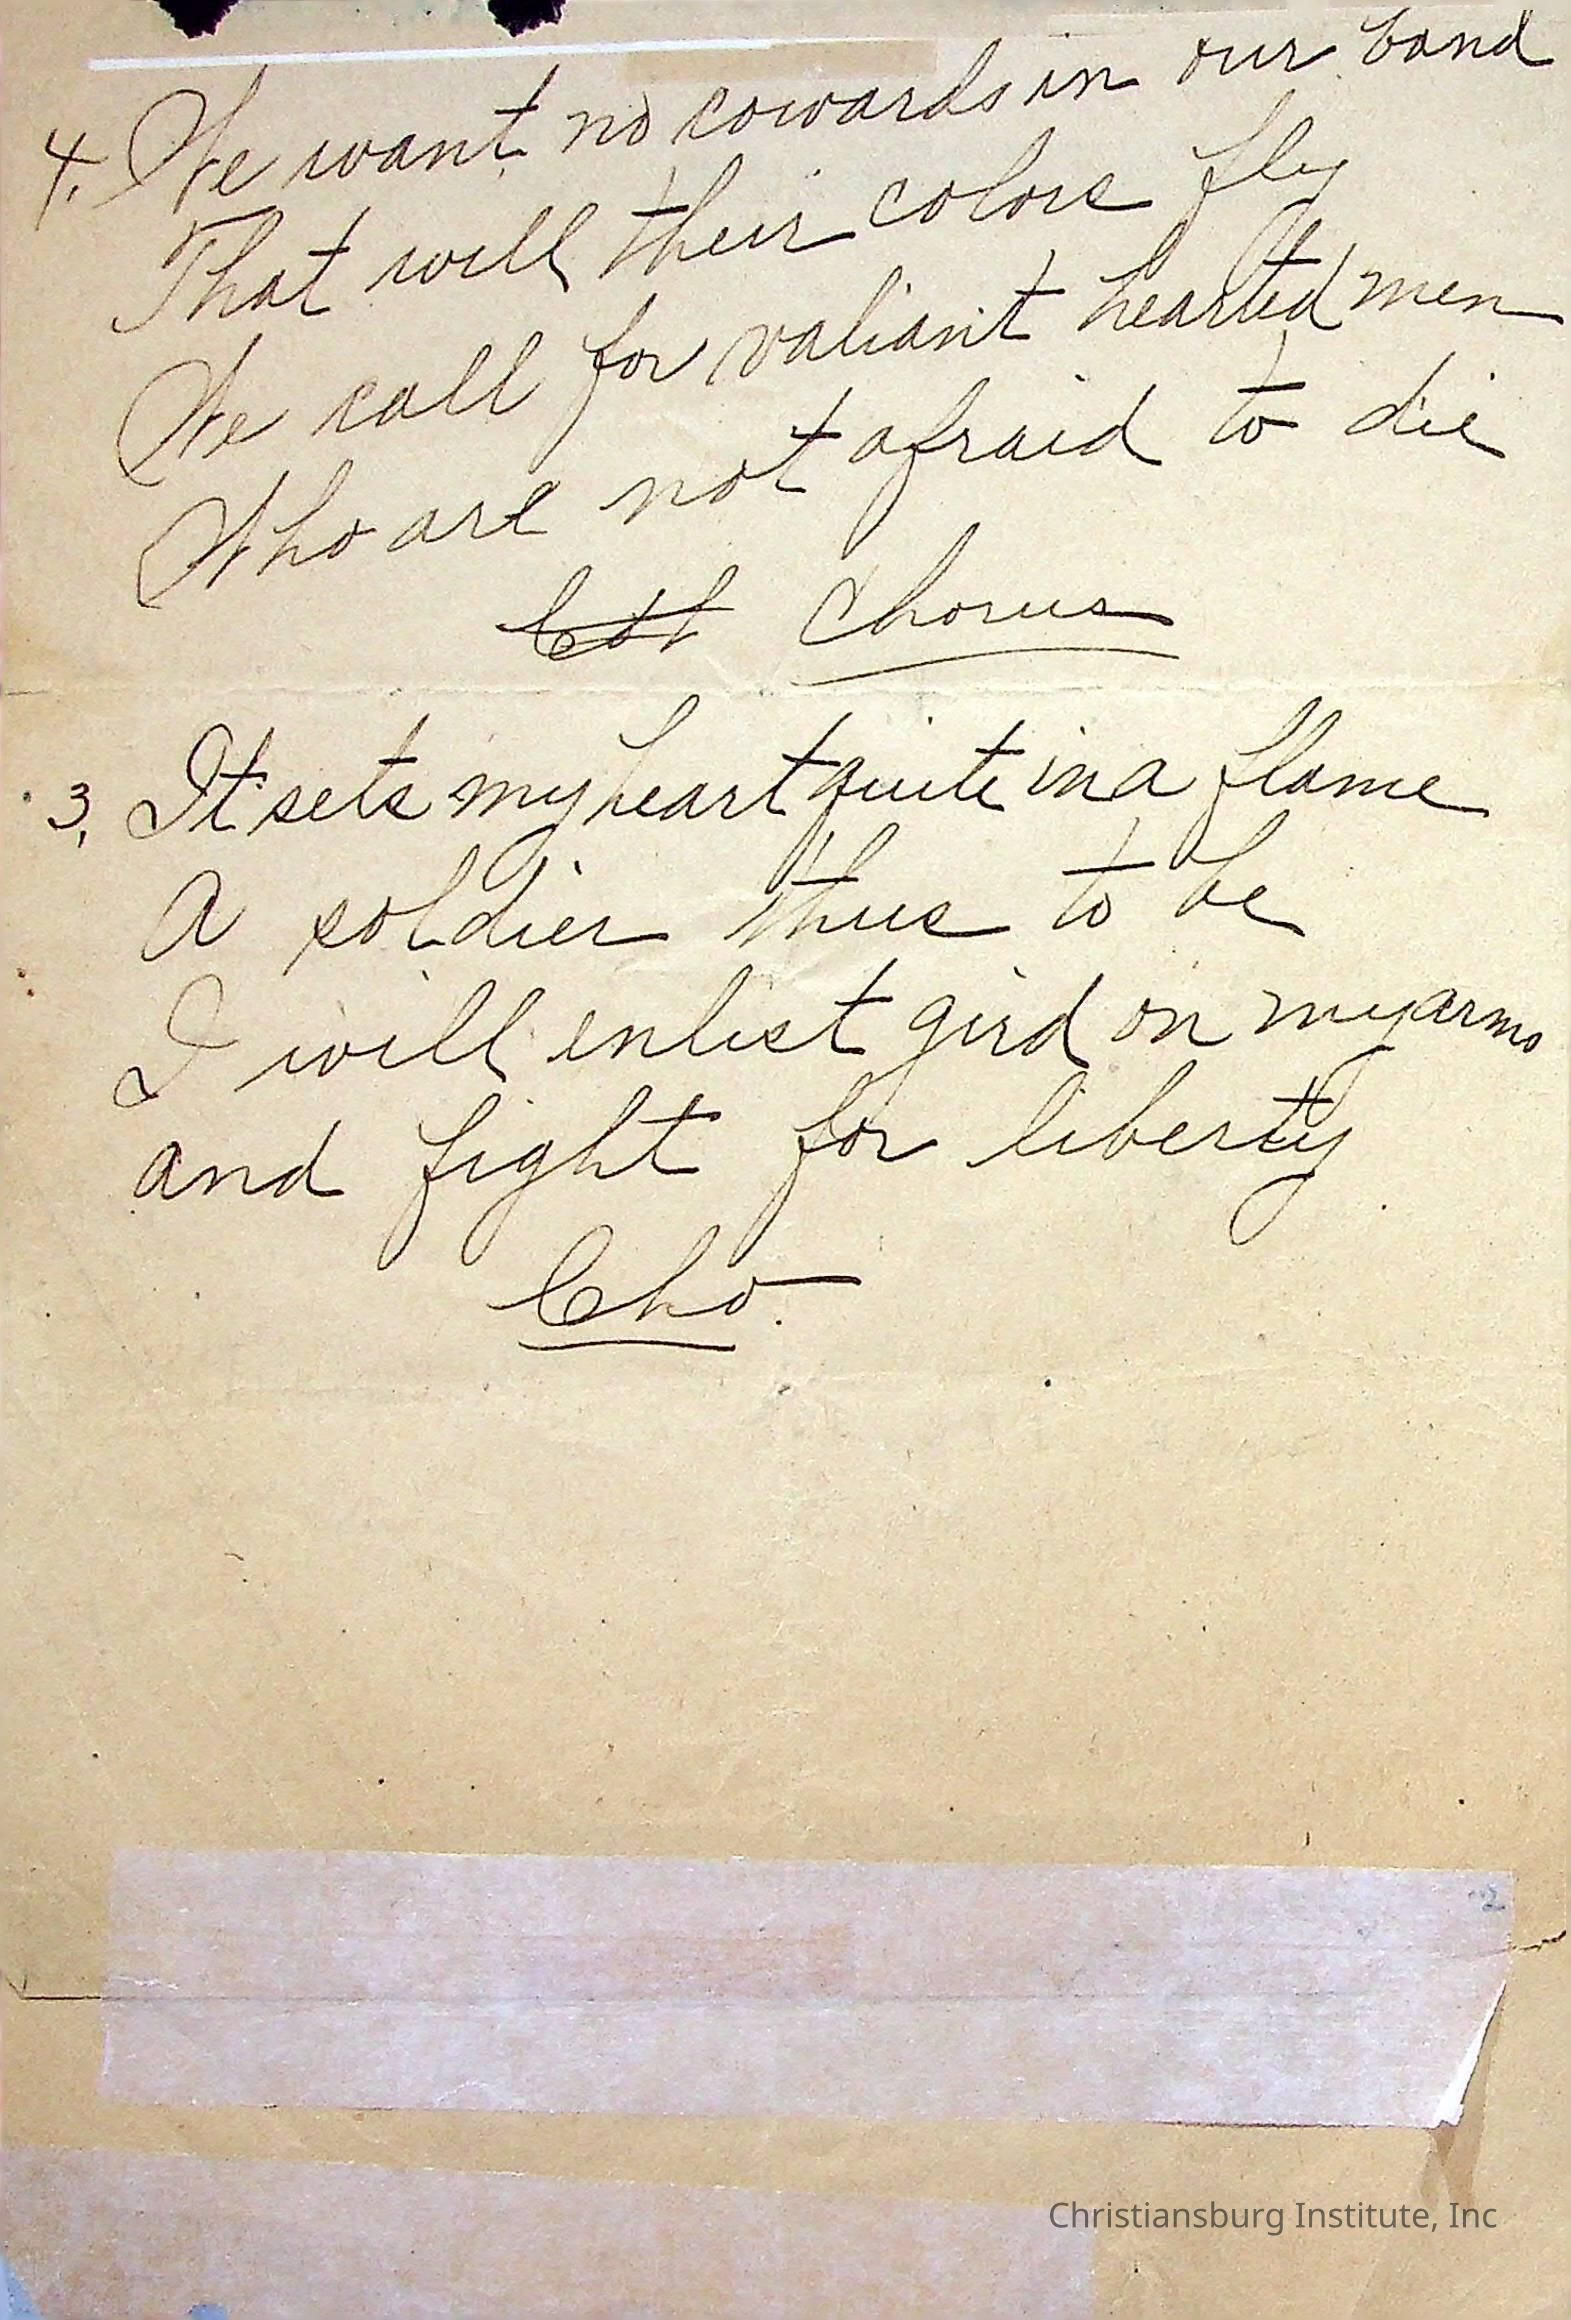 4. We want no cowards in our band
That will their colors fly
We call for valiant hearted men
Who are not afraid to die
Chorus
3. It sets my heart quite in a flame
A soldier thus to be
I will enlist gird on my arms
and fight for liberty
Cho.
2
Christiansburg Institute, Inc